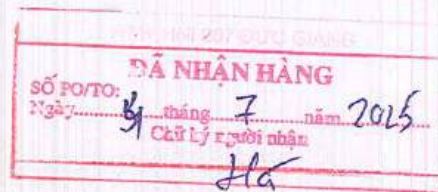 ĐÃ NHẬN HÀNG
SỐ PO/TO:
Ngày.......... tháng 7 năm 2025
Chữ ký người nhận
Hà